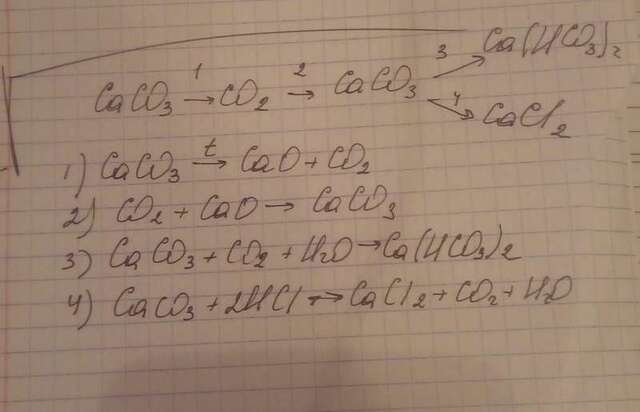 CaCO₃ →¹ CO₂ →² CaCO₃ →³ Ca(HCO₃)₂
→⁴ CaCl₂
1) CaCO₃ →ᵗ CaO + CO₂
2) CO₂ + CaO → CaCO₃
3) CaCO₃ + CO₂ + H₂O → Ca(HCO₃)₂
4) CaCO₃ + 2HCl → CaCl₂ + CO₂ + H₂O